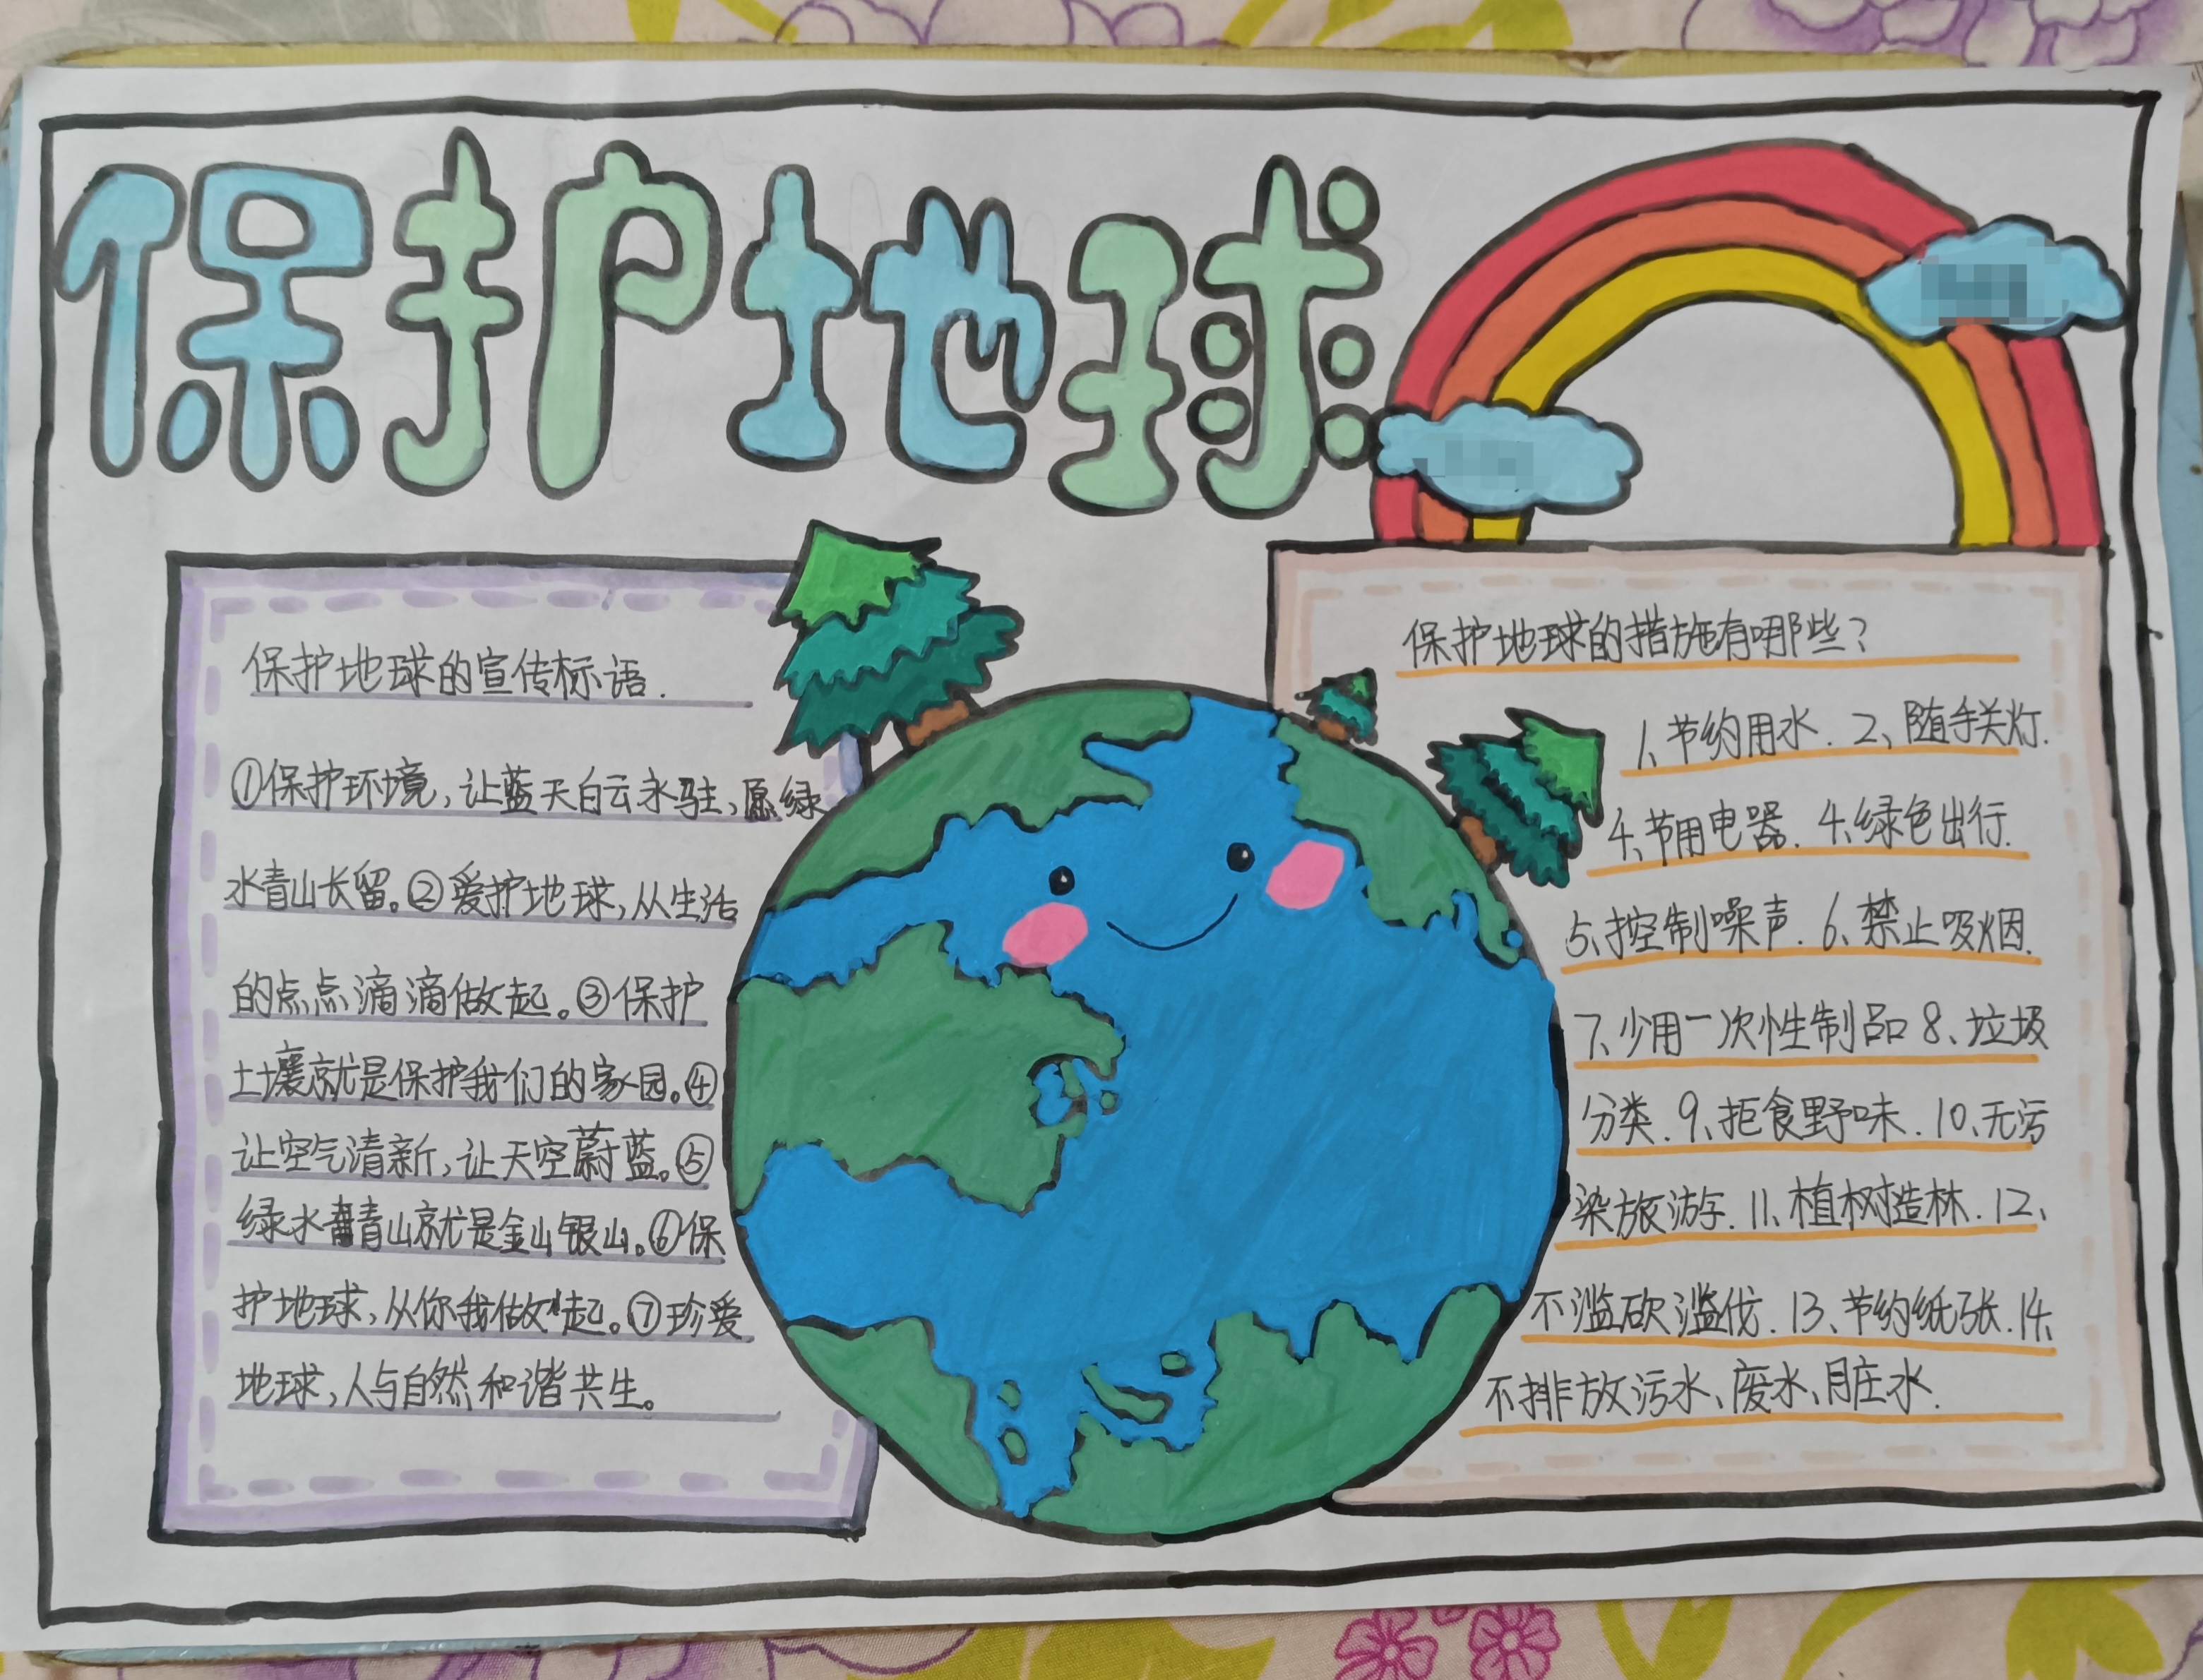 保护地球
保护地球的宣传标语.
①保护环境,让蓝天白云永驻,愿绿
水青山长留。②爱护地球,从生活
的点点滴滴做起。③保护
土壤就是保护我们的家园。④
让空气清新,让天空蔚蓝。⑤
绿水青山就是金山银山。⑥保
护地球,从你我做起。⑦珍爱
地球,人与自然和谐共生。
保护地球的措施有哪些?
1、节约用水. 2、随手关灯.
4、节用电器. 4、绿色出行.
5、控制噪声. 6、禁止吸烟.
7、少用一次性制品 8、垃圾
分类. 9、拒食野味. 10、无污
染旅游. 11、植树造林. 12、
不滥砍滥伐. 13、节约纸张. 14、
不排放污水、废水、脏水.